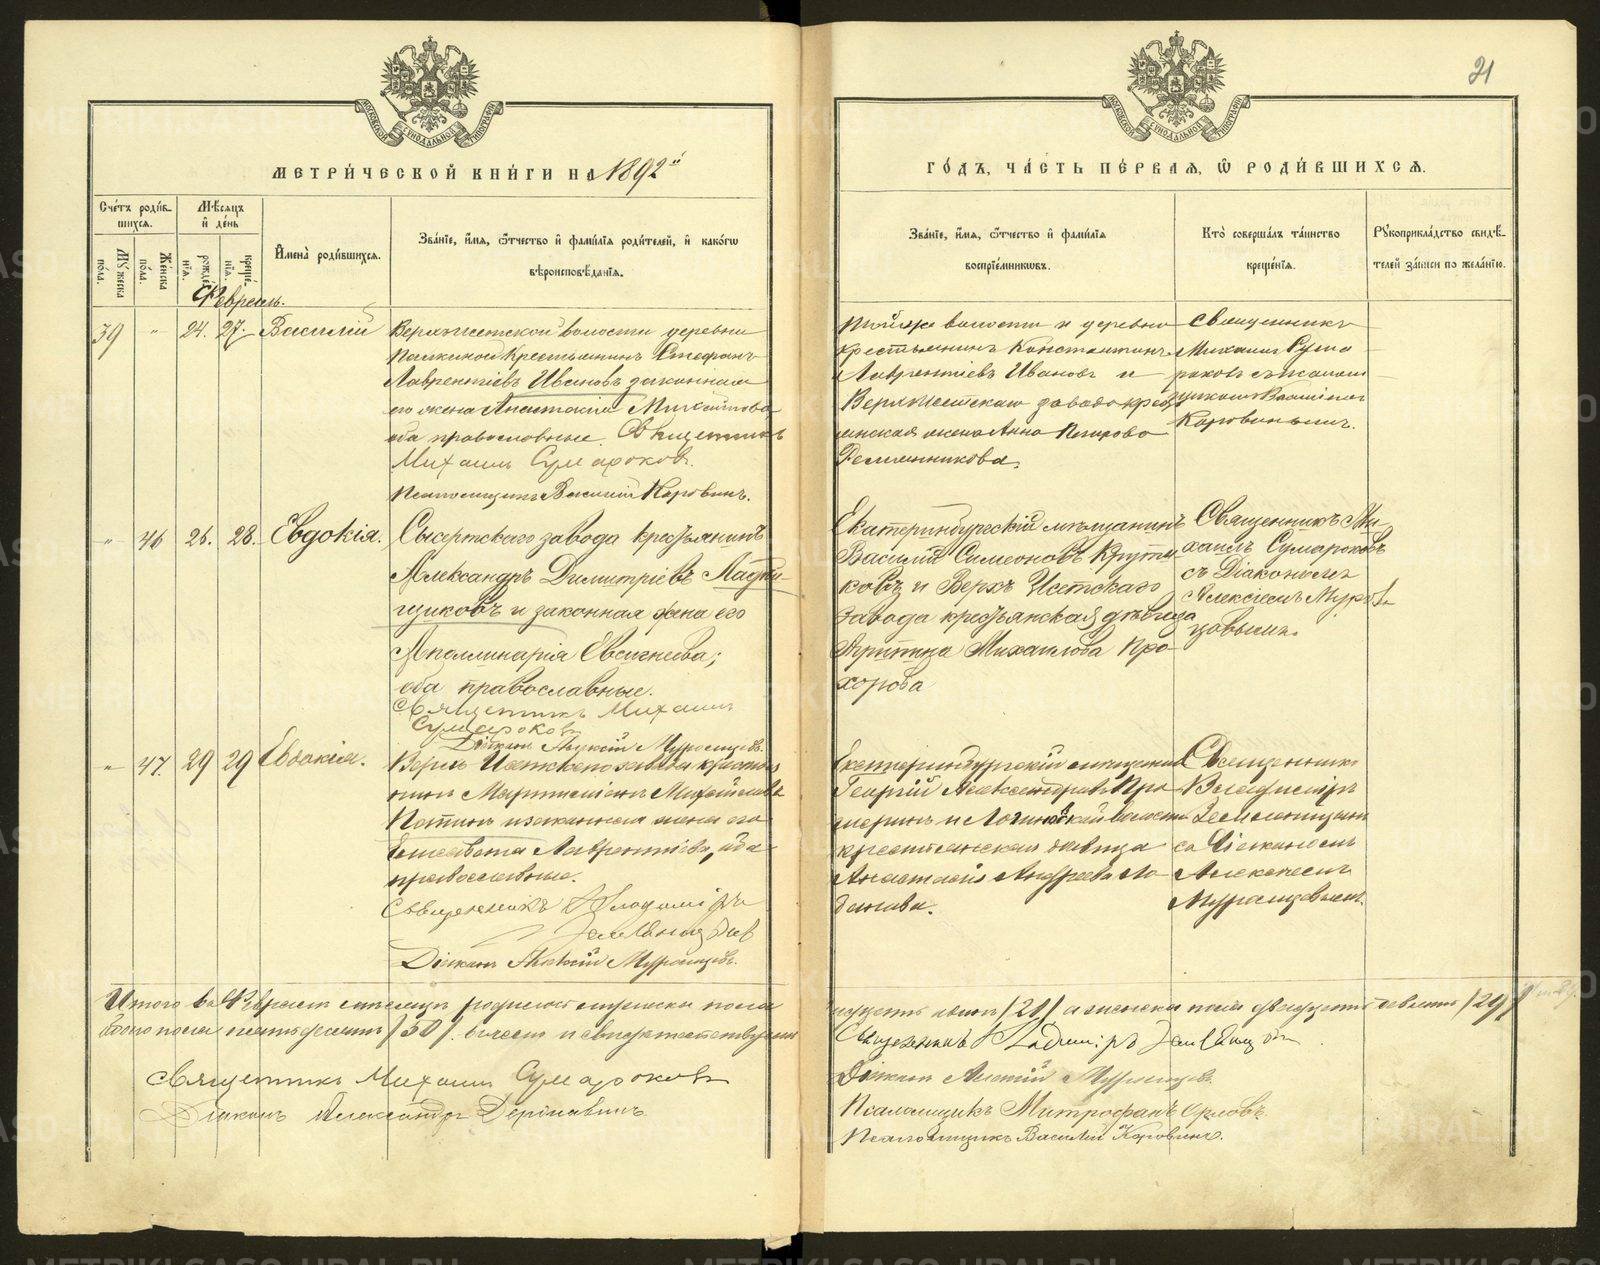 21
МОСКОВСКОЙ СѴНОДАЛЬНОЙ ТИПОГРАФІИ
МЕТРИ́ЧЕСКОЙ КНИ́ГИ НА 1892й
Сче́тъ роди́вшихся.
Му́жеска по́ла.
Же́нска по́ла.
Мѣ́сяцъ и҆ де́нь
рожде́нїѧ.
креще́нїѧ.
И҆мена̀ роди́вшихсѧ.
Зва́нїе, и҆́мѧ, ѻ҆́тчество и҆ фамі́лїѧ роди́телей, и҆ како́гѡ
вѣроисповѣ́данїѧ.
Февраль.
39 " 24. 27. Василій
Верхъ-Исетской волости деревни
Палкиной Крестьянинъ Стефанъ
Лаврентіевъ Ивановъ законная
его жена Анастасія Михайлова
оба православные. Священникъ
Михаилъ Сумароковъ.
Псаломщикъ Василій Коровинъ.
" 46 26. 28. Евдокія.
Сысертскаго завода крестьянинъ
Александръ Димитріевъ
щиковъ и законная жена его
Аполлинарія Евсигнеева;
оба православные.
Священникъ Михаилъ
Сумароковъ
Діаконъ Алексій Мурзинцовъ.
" 47. 29 29 Евдокія.
Верхъ Исетскаго завода крестья
нинъ Мартиніанъ Михайловъ
и законная жена его
Елисавета Лаврентіева, оба
православные.
Священникъ Владиміръ
Земляницынъ
Діаконъ Алексій
Итого въ Февралѣ мѣсяцѣ родилось мужеска пола
обоего пола пятьдесятъ /50/.
Священникъ Михаилъ Сумароковъ
Діаконъ Александръ Державинъ
ГО́ДЪ, ЧА́СТЬ ПЕ́РВАѦ, Ѡ҆ РОДИ́ВШИХСѦ.
МОСКОВСКОЙ СѴНОДАЛЬНОЙ ТИПОГРАФІИ
Зва́нїе, и҆́мѧ, ѻ҆́тчество и҆ фамі́лїѧ
воспрїе́мникѡвъ.
Кто̀ соверша́лъ та́инство
креще́нїѧ.
Рꙋкоприкла́дство свидѣ́-
телей за́писи по жела́нїю.
Той же волости и деревни
крестьянинъ Константинъ
Лаврентіевъ Ивановъ и
Верхъ-Исетскаго завода кресть
янская жена Анна Петрова
Решетникова.
Священникъ
Михаилъ Сума
роковъ съ псалом
щикомъ Василіемъ
Коровинымъ.
Екатеринбургскій мѣщанинъ
Василій Симеоновъ Крути
ковъ и Верхъ Исетскаго
завода крестьянская дѣвица
Михаилова Про-
хорова
Священникъ Ми-
хаилъ Сумароковъ
съ Діакономъ
Алексіемъ
цовымъ.
Екатеринбургскій мѣщанинъ
Георгій Александровъ
и волости
крестьянская дѣвица
Анастасія Андреева Ло
банова.
Священникъ
Владиміръ
Земляницынъ
съ Діакономъ
Алексіемъ
двадцать одинъ /21/ а женска пола двадцать девять /29/
Священникъ Владиміръ Земляницынъ
Діаконъ Алексій
Псаломщикъ Митрофанъ Орловъ
Псаломщикъ Василій Коровинъ.
METRIKI.GASO-URAL.RU